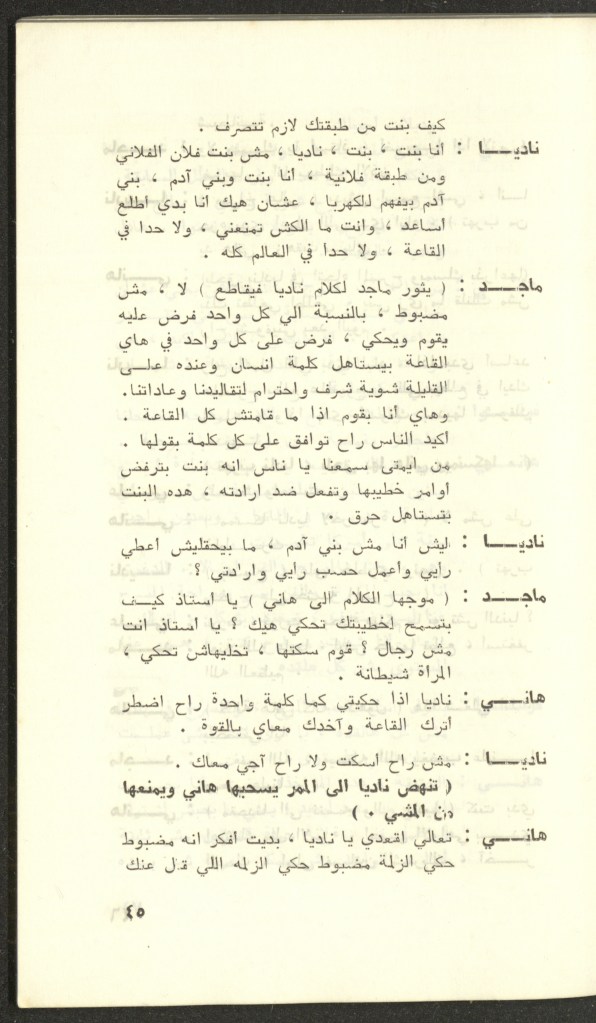 كيف بنت من طبقتك لازم تتصرف .
ناديـــا : أنا بنت ، بنت ، ناديا ، مش بنت فلان الفلاني
ومن طبقة فلانية ، أنا بنت وبني آدم ، بني
آدم بيفهم لالكهربا ، عشان هيك أنا بدي أطلع
أساعد ، وانت ما الكش تمنعني ، ولا حدا في
القاعة ، ولا حدا في العالم كله .
ماجـــد : ( يثور ماجد لكلام ناديا فيقاطع ) لا ، مش
مضبوط ، بالنسبة الي كل واحد فرض عليه
يقوم ويحكي ، فرض على كل واحد في هاي
القاعة بيستاهل كلمة انسان وعنده علـــى
القليلة شوية شرف واحترام لتقاليدنا وعاداتنا.
وهاي أنا بقوم اذا ما قامتش كل القاعة .
أكيد الناس راح توافق على كل كلمة بقولها .
من ايمتى سمعنا يا ناس انه بنت بترفض
أوامر خطيبها وتفعل ضد ارادته ، هده البنت
بتستاهل حرق .
ناديـــا : ليش أنا مش بني آدم ، ما بيحقليش أعطي
رايي وأعمل حسب رايي وارادتي ؟
ماجـــد : ( موجها الكلام الى هاني ) يا استاذ كيـــف
بتسمح لخطيبتك تحكي هيك ؟ يا استاذ انت
مش رجال ؟ قوم سكتها ، تخليهاش تحكي ،
المرأة شيطانة .
هانـــي : ناديا اذا حكيتي كما كلمة واحدة راح اضطر
أترك القاعة وآخدك معاي بالقوة .
ناديـــا : مش راح اسكت ولا راح آجي معاك .
( تنهض ناديا الى الممر يسحبها هاني ويمنعها
من المشي . )
هانـــي : تعالي اقعدي يا ناديا ، بديت افكر انه مضبوط
حكي الزلمة مضبوط حكي الزلمه اللي قال عنك
٤٥